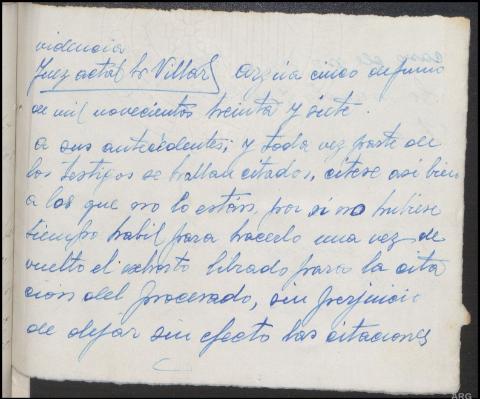 videncia
Juez actal Sr Villar Arzúa cinco de junio
de mil novecientos treinta y siete.
a sus antecedentes; y toda vez parte de
los testigos se hallan citados, cítese asi bien
a los que no lo están, por si no hubiese
tiempo habil para hacerlo una vez de
vuelto el exhorto librado para la cita
ción del procesado, sin perjuicio
de dejar sin efecto las citaciones
ARG